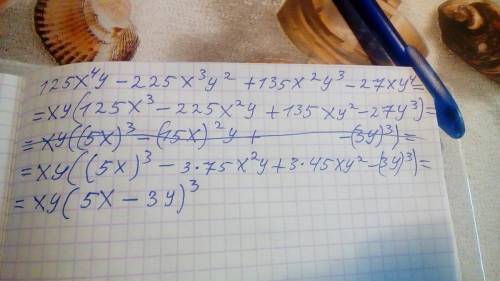 125x⁴y - 225x³y² + 135x²y³ - 27xy⁴=
=xy(125x³ - 225x²y + 135xy² - 27y³)=
=xy((5x)³ - (15x)²y + - (3y)³)=
=xy((5x)³ - 3·75x²y + 3·45xy² - (3y)³)=
=xy(5x - 3y)³